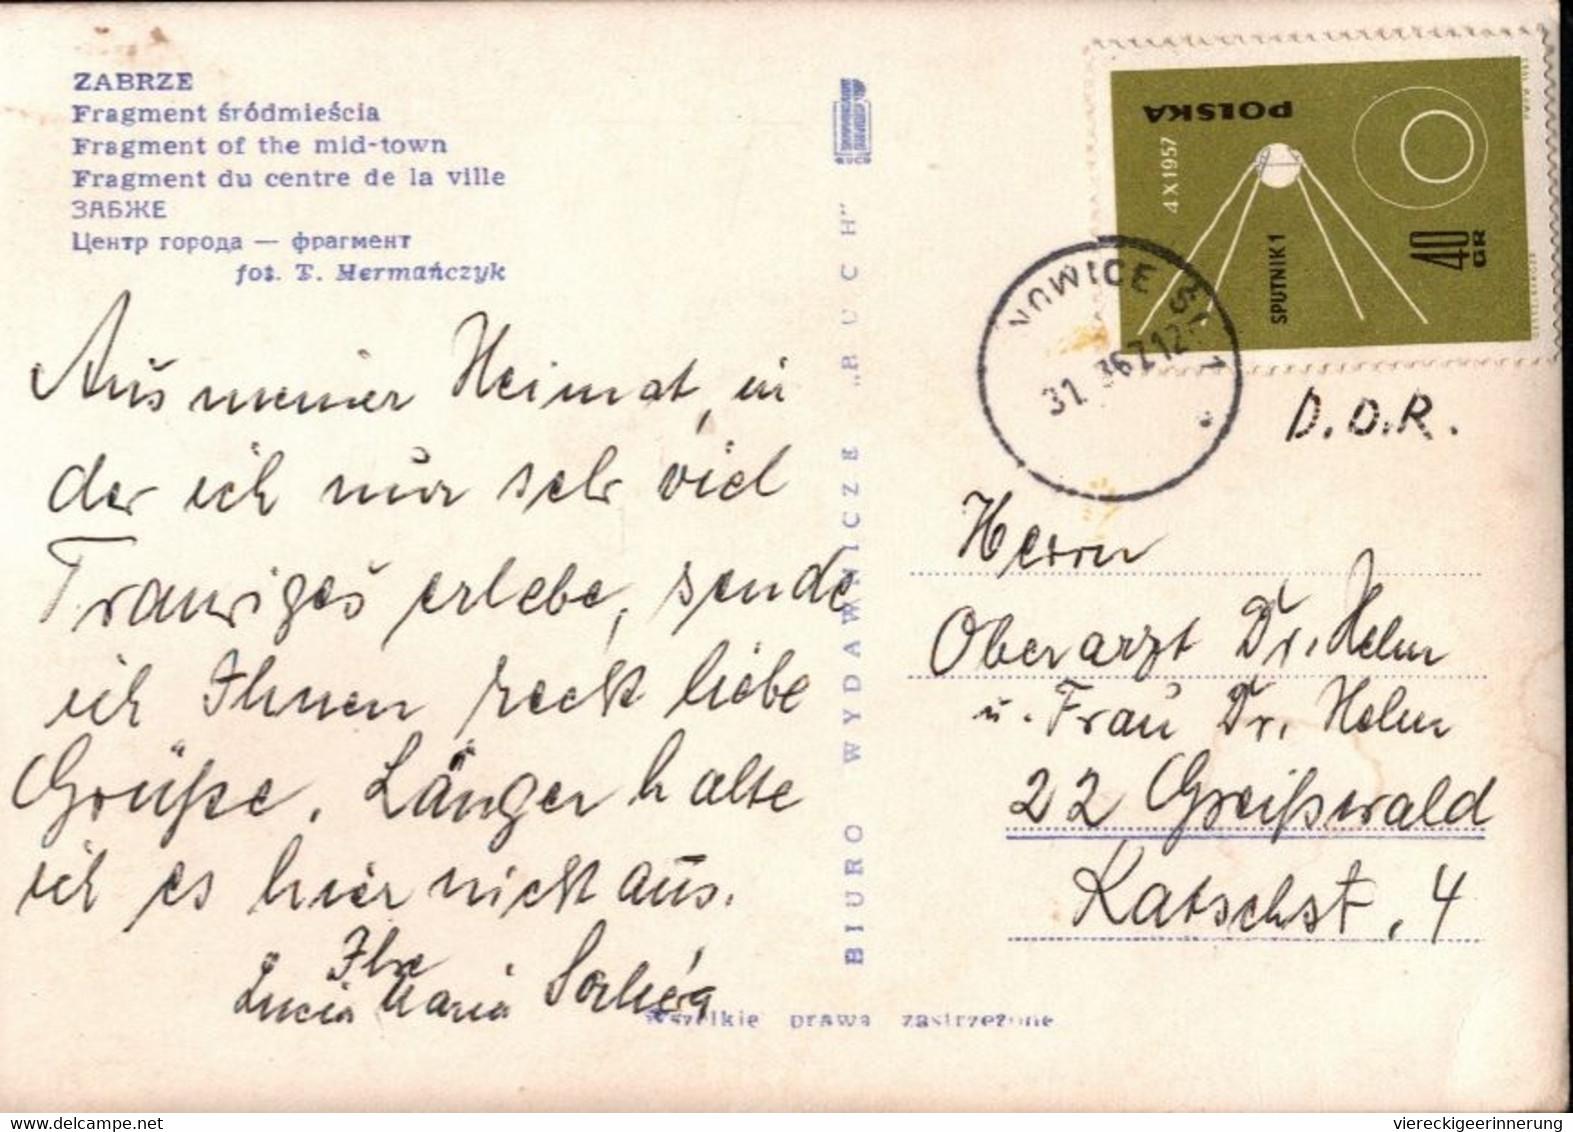 ZABRZE
Fragment śródmieścia
Fragment of the mid-town
Fragment du centre de la ville
ЗАБЖЕ
Центр города — фрагмент
fot. T. Hermańczyk
Aus meiner Heimat, in
der ich nur sehr viel
Trauriges erlebe, sende
ich Ihnen recht liebe
Grüße. Länger halte
ich es hier nicht aus.
Ihre
Lucia Maria
BIURO WYDAWNICZE „RUCH"
Wszelkie prawa zastrzeżone
POLSKA
4 X 1957
SPUTNIK 1
40 GR
NOWICE ŚL. 1
D.D.R.
Herrn
Oberarzt Dr. Helm
u. Frau Dr. Helm
22 Greifswald
Katschst. 4
viereckigeerinnerung